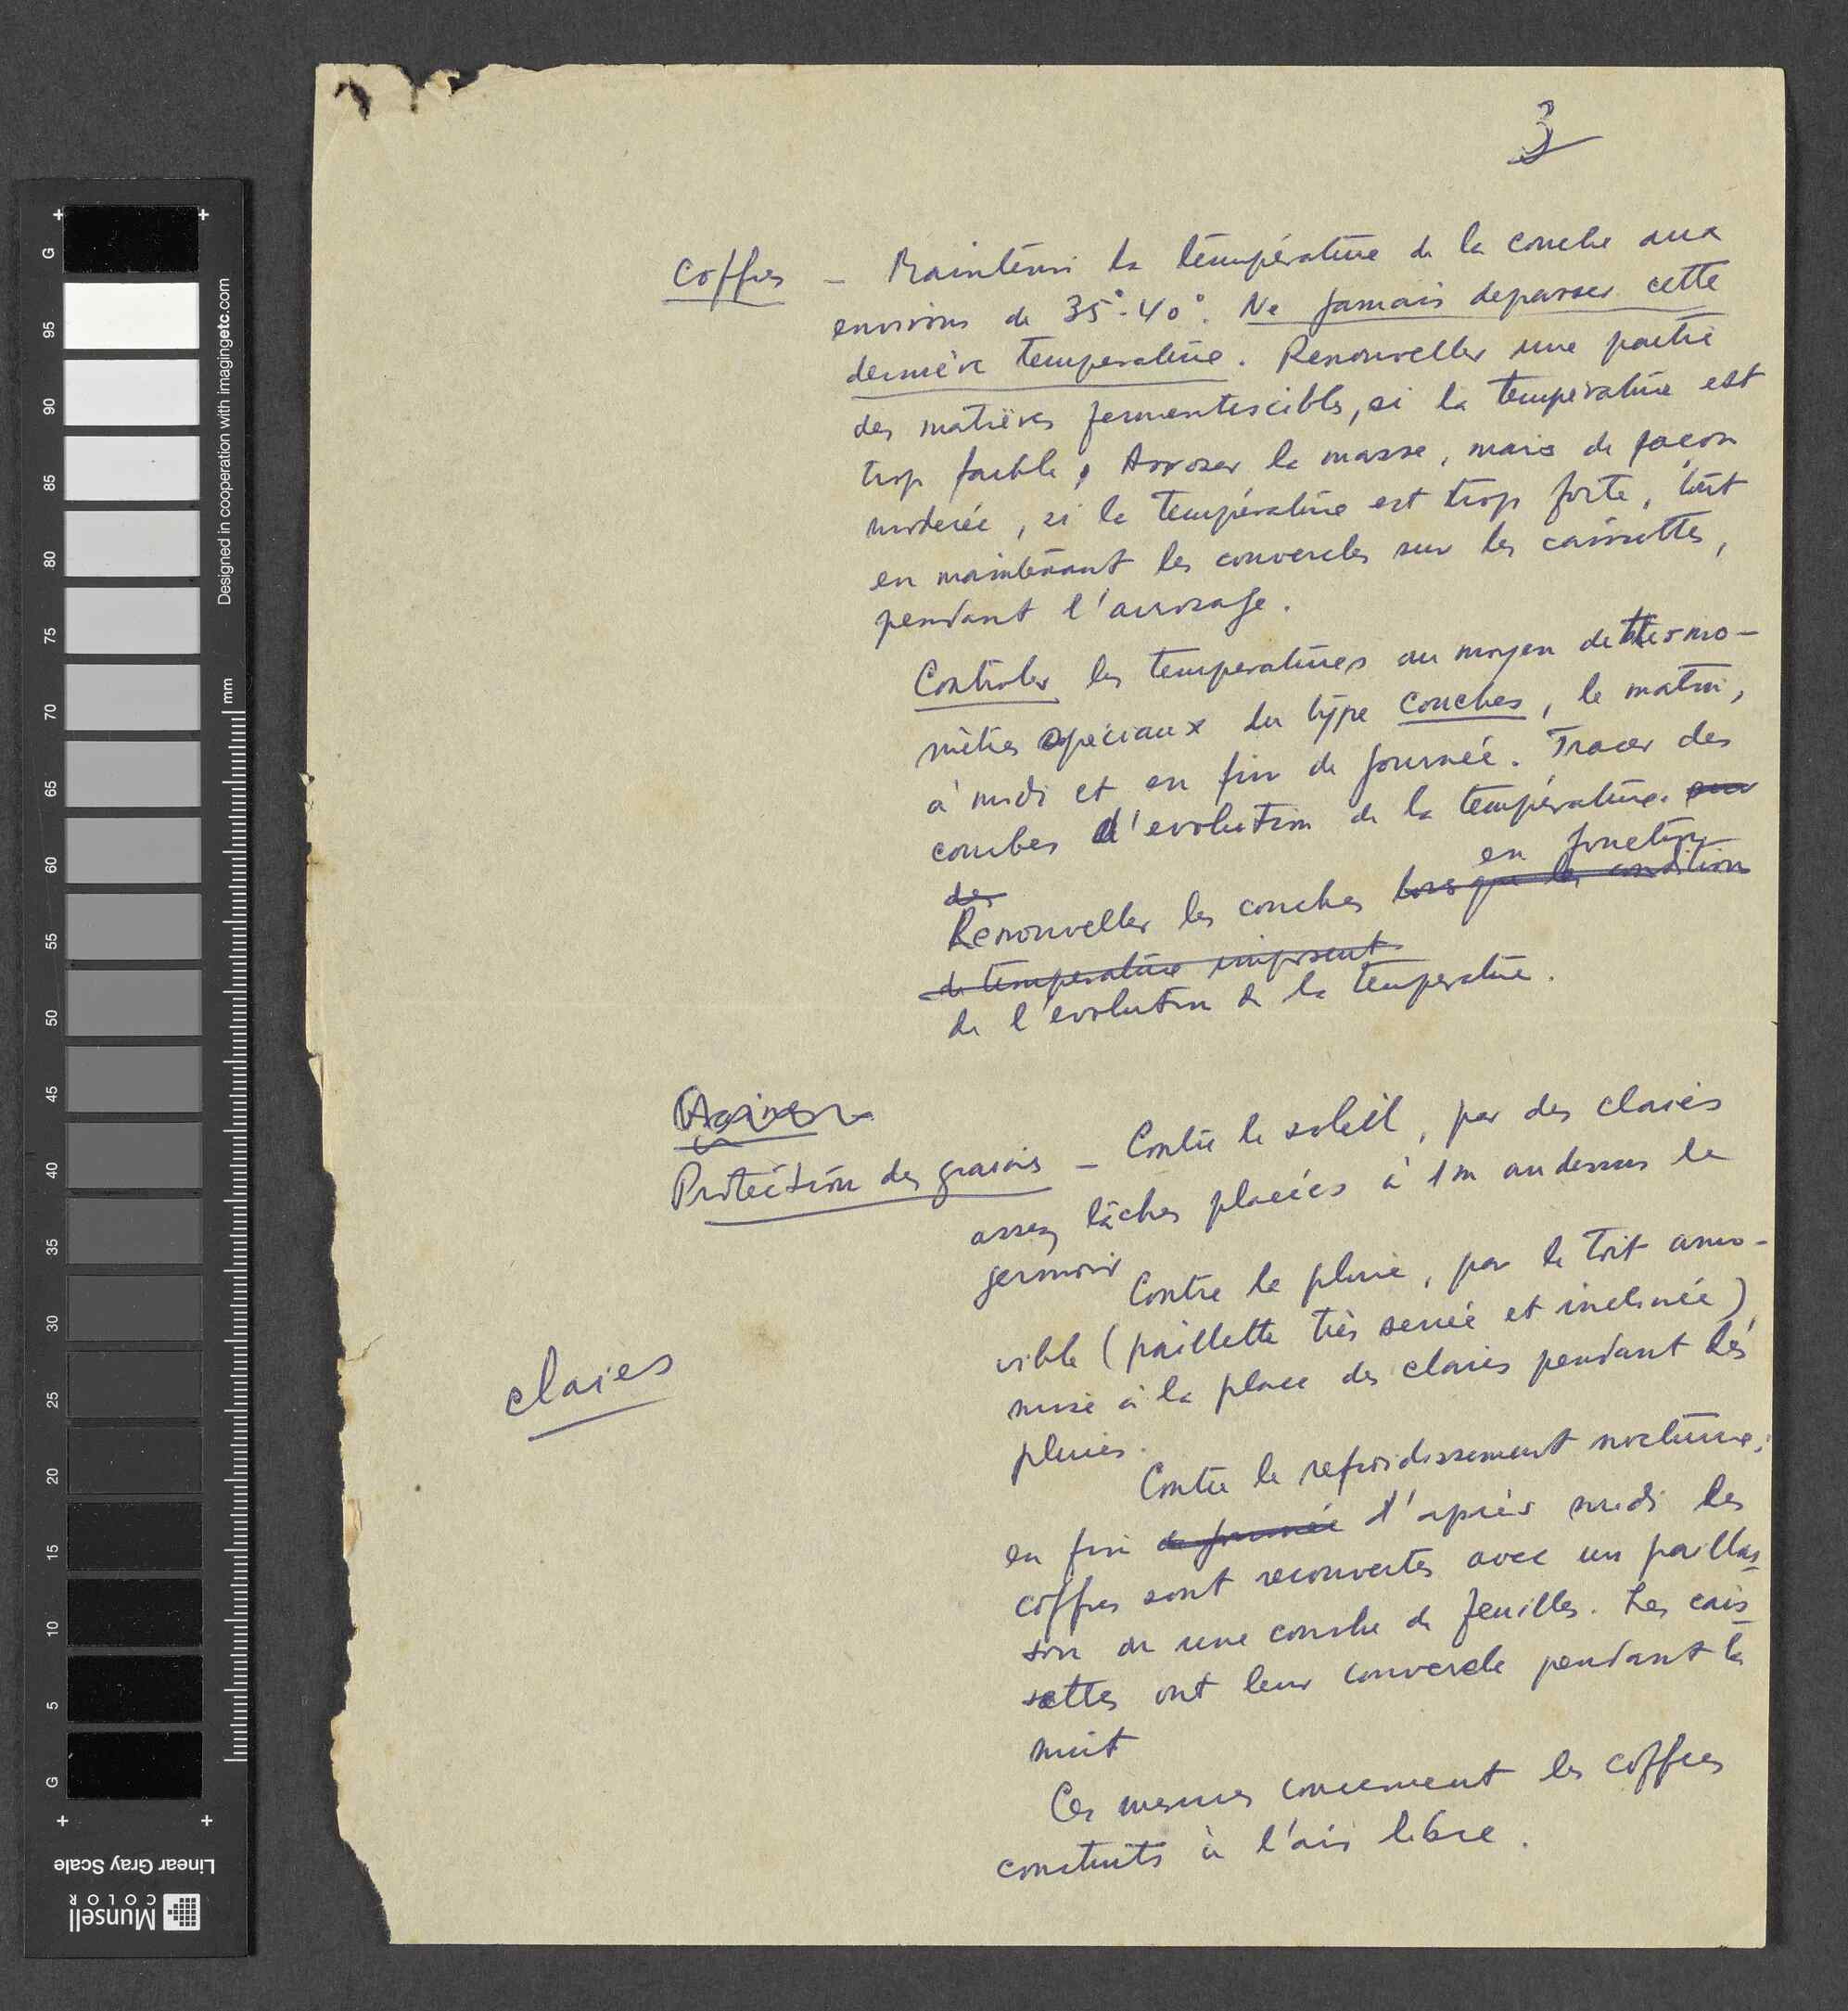 3
Coffres - Maintenir la température de la couche aux
environs de 35°-40°. Ne jamais depasser cette
dernière temperature. Renouveller une partie
des matières fermentescibles, si la temperature est
trop faible, Arroser la masse, mais de façon
moderée, si la température est trop forte, tout
en maintenant les couvercles sur les caissettes,
pendant l'arrosage.
Controler les temperatures au moyen de thermo-
mètres speciaux du type couches, le matin,
à midi et en fin de journée. Tracer des
courbes d'evolution de la température. sur
des
en fonction
Renouveller les couches lorsque les condition
de temperature imposent
de l'evolution de la temperature.
Protéction des grains - Contre le soleil, par des claies
assez lâches placées à 1m au dessus le
germoir
Contre la pluie, par le toit amo-
vible (paillette très serrée et inclinée)
mise à la place des claies pendant les
pluies.
claies
Contre le refroidissement nocturne,
en fin de journée d'après midi les
coffres sont recouvertes avec un paillas-
son ou une couche de feuilles. Les cais-
settes ont leur couvercle pendant la
nuit
Ces mesures concernent les coffres
construits à l'air libre.
Designed in cooperation with imagingetc.com
mm
G
95
90
85
80
75
70
65
60
55
50
45
40
35
30
25
20
15
10
5
G
Linear Gray Scale
Munsell
COLOR